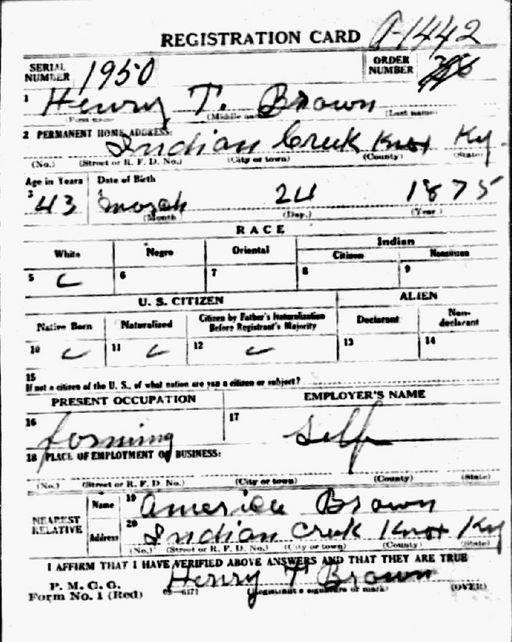 REGISTRATION CARD A-1442
SERIAL NUMBER 1950 ORDER NUMBER
1 Henry T. Brown
(First name) (Middle name) (Last name)
2 PERMANENT HOME ADDRESS:
Indian Creek Knox Ky.
(No.) (Street or R. F. D. No.) (City or town) (County) (State)
Age in Years Date of Birth
3 43 March 24 1875
(Month) (Day.) (Year.)
RACE
White Negro Oriental Indian
Citizen Noncitizen
5 6 7 8 9
U. S. CITIZEN ALIEN
Native Born Naturalized Citizen by Father's Naturalization Before Registrant's Majority Declarant Non-declarant
10 11 12 13 14
15
If not a citizen of the U. S., of what nation are you a citizen or subject?
PRESENT OCCUPATION EMPLOYER'S NAME
16 farming 17 Self
18 PLACE OF EMPLOYMENT OR BUSINESS:
(No.) (Street or R. F. D. No.) (City or town) (County) (State)
NEAREST RELATIVE
Name 19 America Brown
Address 20 Indian Creek Knox Ky
(No.) (Street or R. F. D. No.) (City or town) (County) (State)
I AFFIRM THAT I HAVE VERIFIED ABOVE ANSWERS AND THAT THEY ARE TRUE
P. M. G. O.
Form No. 1 (Red) Henry T Brown
(Registrant's signature or mark) (OVER)